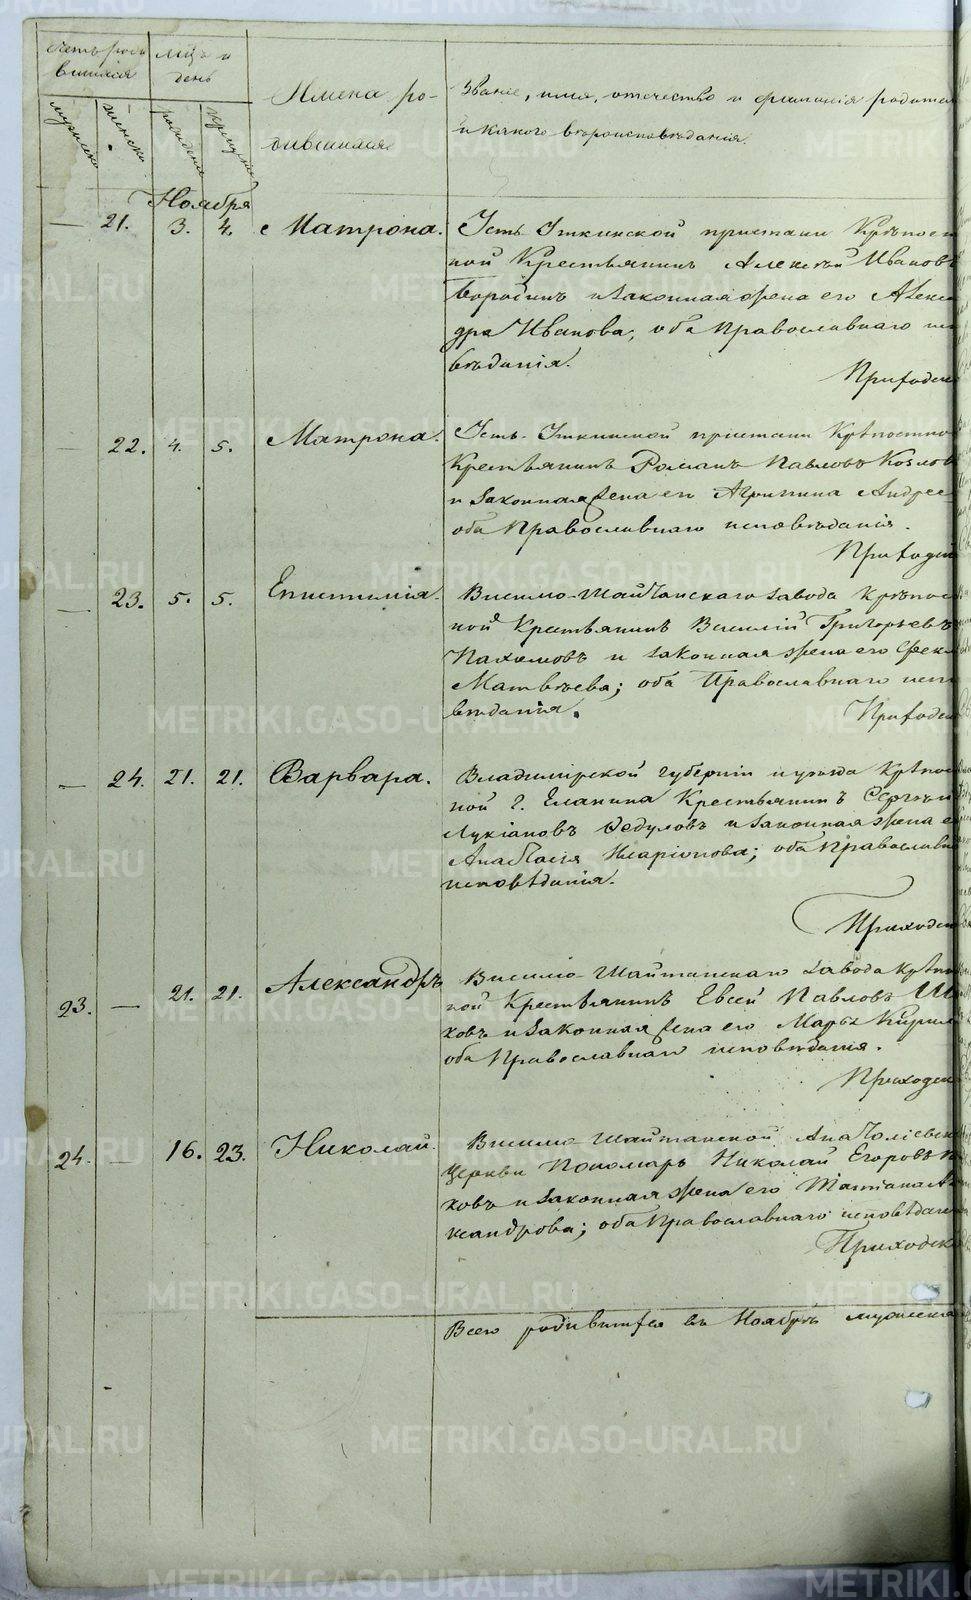 Счетъ роди
вшихся
Мѣц и
день
мужеска
женска
рожденія
крещенія
Имена ро-
дившихся
Званіе, имя, отечество и фамилія родител
и какого вѣроисповѣданія.
Ноября
— 21. 3. 4. Матрона.
Усть Уткинской пристани Крѣпост
ной Крестьянинъ Алексѣй Ивановъ
Бородинъ и законная жена его Алекса
дра Иванова, оба Православнаго ис
вѣданія.
Приходск
— 22. 4. 5. Матрона.
Усть-Уткинской пристани Крѣпостно
Крестьянинъ Романъ Павловъ Козлов
и законная жена его Агрипина Андрее
оба Православнаго исповѣданія.
Приходск
— 23. 5. 5. Епистимія.
Висимо-Шайтанскаго завода Крѣпос
ной Крестьянинъ Василій Григорьевъ
Пахомовъ и законная жена его Фекл
Матвѣева; оба Православнаго испо
вѣданія.
Приходск
— 24. 21. 21. Варвара.
Владимірской губерніи и уѣзда Крѣпос
ной г. Еланина Крестьянинъ Сергѣй
Лукіановъ Федуловъ и законная жена е
Анастасія Иларіонова; оба Православна
исповѣданія.
Приходск
23. — 21. 21. Александръ
Висимо-Шайтанскаго завода Крѣпо
ной Крестьянинъ Евсей Павловъ
ховъ и законная жена его Марѳа Кирил
оба Православнаго исповѣданія.
Приходск
24. — 16. 23. Николай.
Висимо-Шайтанской Анатоліевск
Церкви Пономарь Николай Егоровъ
ховъ и законная жена его Татіана Ал
ксандрова; оба Православнаго исповѣдан
Приходск
Всего родившихся въ Ноябрѣ мужеска
METRIKI.GASO-URAL.RU